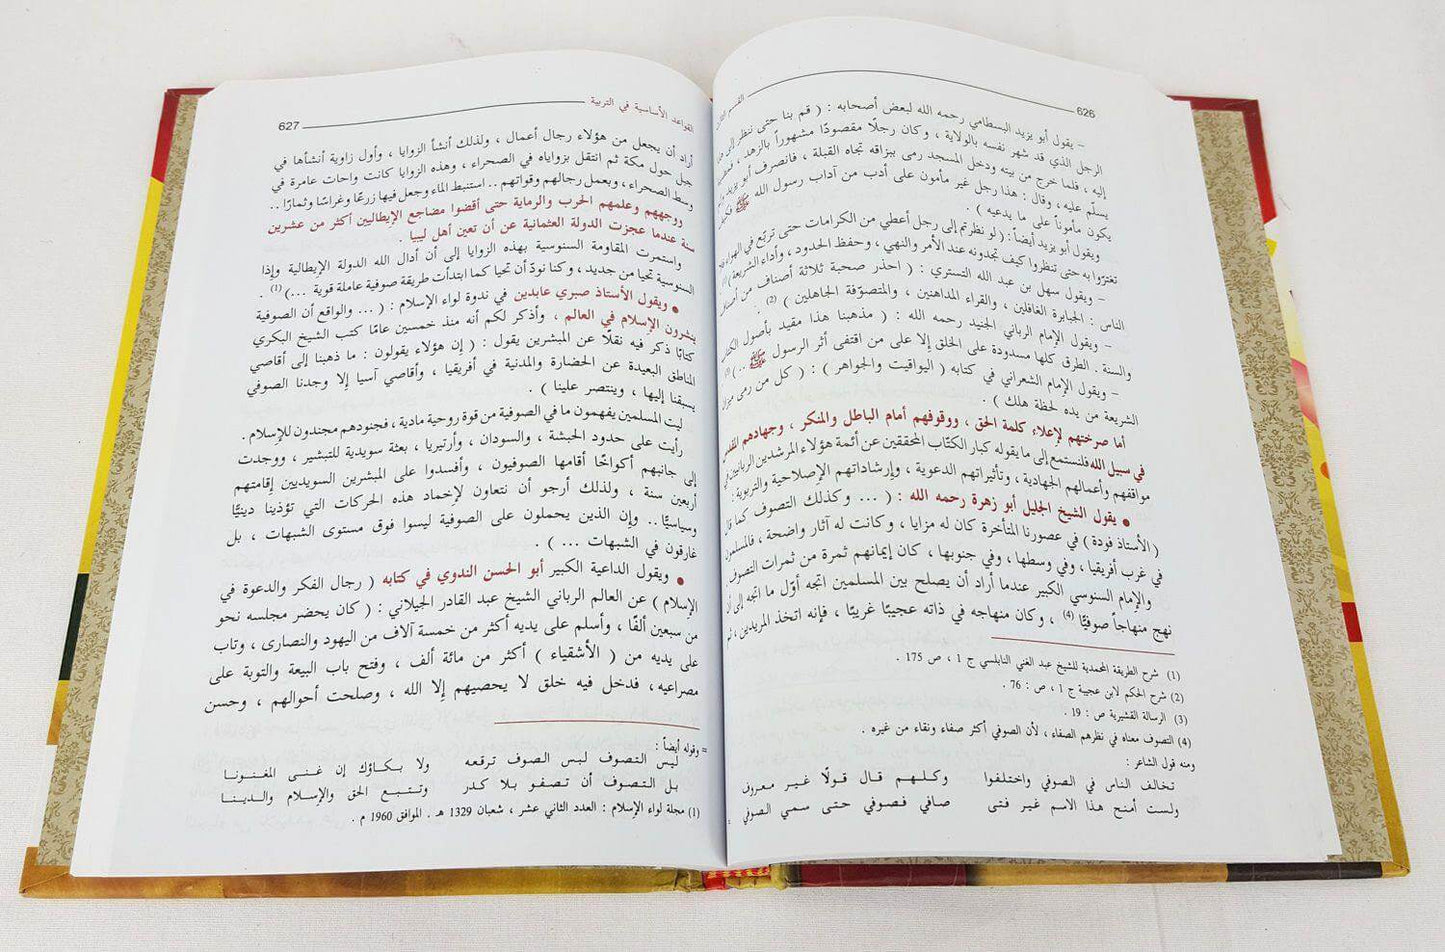 626
القسم
– يقول أبو يزيد البسطامي رحمه الله لبعض أصحابه : ( قم بنا حتى ننظر إلى
الرجل الذي قد شهر نفسه بالولاية ، وكان رجلًا مقصودًا مشهوراً بالزهد ،
إليه ، فلما خرج من بيته ودخل المسجد رمى ببزاقه تجاه القبلة ، فانصرف أبو يزيد
يسلّم عليه ، وقال : هذا رجل غير مأمون على أدب من آداب رسول الله ﷺ
يكون مأموناً على ما يدعيه ) .
ويقول أبو يزيد أيضاً : ( لو نظرتم إلى رجل أعطي من الكرامات حتى تربّع في الهواء
تغترّوا به حتى تنظروا كيف تجدونه عند الأمر والنهي ، وحفظ الحدود ، وأداء الشريعة )
– ويقول سهل بن عبد الله التستري : ( احذر صحبة ثلاثة أصناف من
الناس : الجبابرة الغافلين ، والقراء المداهنين ، والمتصوّفة الجاهلين ) (2) .
– ويقول الإمام الرباني الجنيد رحمه الله : ( مذهبنا هذا مقيد بأصول
والسنة . الطرق كلها مسدودة على الخلق إلا على من اقتفى أثر الرسول ﷺ ..)
– ويقول الإمام الشعراني في كتابه ( اليواقيت والجواهر ) : ( كل من رمى ميزان
الشريعة من يده لحظة هلك ) .
أما صرختهم لإعلاء كلمة الحق ، ووقوفهم أمام الباطل والمنكر ، وجهادهم
في سبيل الله فلنستمع إلى ما يقوله كبار الكتّاب المحققين عن أئمة هؤلاء المرشدين الربانيين
مواقفهم وأعمالهم الجهادية ، وتأثيراتهم الدعوية ، وإرشاداتهم الإصلاحية والتربوية :
● يقول الشيخ الجليل أبو زهرة رحمه الله : ( ... وكذلك التصوف كما قال
( الأستاذ فودة ) في عصورنا المتأخرة كان له مزايا ، وكانت له آثار واضحة ، فالمسلمون
في غرب أفريقيا ، وفي وسطها ، وفي جنوبها ، كان إيمانهم ثمرة من ثمرات التصوف .
والإمام السنوسي الكبير عندما أراد أن يصلح بين المسلمين اتجه أوّل ما اتجه إلى أن
نهج منهاجاً صوفيًّا (4) ، وكان منهاجه في ذاته عجيبًا غريبًا ، فإنه اتخذ المريدين ، ثم
(1) شرح الطريقة المحمدية للشيخ عبد الغني النابلسي ج 1 ، ص 175 .
(2) شرح الحكم لابن عجيبة ج 1 ، ص : 76 .
(3) الرسالة القشيرية ص : 19 .
(4) التصوف معناه في نظرهم الصفاء ، لأن الصوفي أكثر صفاء ونقاء من غيره .
ومنه قول الشاعر :
تخالف الناس في الصوفي واختلفوا وكلهم قال قولًا غير معروف
ولست أمنح هذا الاسم غير فتى صافي فصوفي حتى سمي الصوفي =
القواعد الأساسية في التربية 627
أراد أن يجعل من هؤلاء رجال أعمال ، ولذلك أنشأ الزوايا ، وأول زاوية أنشأها في
جبل حول مكة ثم انتقل بزواياه في الصحراء ، وهذه الزوايا كانت واحات عامرة في
وسط الصحراء ، وبعمل رجالهم وقواتهم .. استنبط الماء وجعل فيها زرعًا وغراسًا وثمارًا ..
ووجههم وعلمهم الحرب والرماية حتى أقضوا مضاجع الإيطاليين أكثر من عشرين
سنة عندما عجزت الدولة العثمانية عن أن تعين أهل ليبيا .
واستمرت المقاومة السنوسية بهذه الزوايا إلى أن أدال الله الدولة الإيطالية وإذا
السنوسية تحيا من جديد ، وكنا نودّ أن تحيا كما ابتدأت طريقة صوفية عاملة قوية ...) (1) .
● ويقول الأستاذ صبري عابدين في ندوة لواء الإسلام : ( ... والواقع أن الصوفية
ينشرون الإسلام في العالم ، وأذكر لكم أنه منذ خمسين عامًا كتب الشيخ البكري
كتابًا ذكر فيه نقلًا عن المبشرين يقول : ( إن هؤلاء يقولون : ما ذهبنا إلى أقاصي
المناطق البعيدة عن الحضارة والمدنية في أفريقيا ، وأقاصي آسيا إلا وجدنا الصوفي
يسبقنا إليها ، وينتصر علينا ) .
ليت المسلمين يفهمون ما في الصوفية من قوة روحية مادية ، فجنودهم مجندون للإسلام .
رأيت على حدود الحبشة ، والسودان ، وأرتيريا ، بعثة سويدية للتبشير ، ووجدت
إلى جانبهم أكواخًا أقامها الصوفيون ، وأفسدوا على المبشرين السويديين إقامتهم
أربعين سنة ، ولذلك أرجو أن نتعاون لإخماد هذه الحركات التي تؤذينا دينيًّا
وسياسيًّا .. وإن الذين يحملون على الصوفية ليسوا فوق مستوى الشبهات ، بل
غارقون في الشبهات ... ) .
● ويقول الداعية الكبير أبو الحسن الندوي في كتابه ( رجال الفكر والدعوة في
الإسلام ) عن العالم الرباني الشيخ عبد القادر الجيلاني : ( كان يحضر مجلسه نحو
من سبعين ألفًا ، وأسلم على يديه أكثر من خمسة آلاف من اليهود والنصارى ، وتاب
على يديه من ( الأشقياء ) أكثر من مائة ألف ، وفتح باب البيعة والتوبة على
مصراعيه ، فدخل فيه خلق لا يحصيهم إلا الله ، وصلحت أحوالهم ، وحسن
= وقوله أيضاً :
ليس التصوف لبس الصوف ترقعه ولا بكاؤك إن غنى المغنونا
بل التصوف أن تصفو بلا كدر وتتبع الحق والإسلام والدينا
(1) مجلة لواء الإسلام : العدد الثاني عشر ، شعبان 1329 هـ . الموافق 1960 م .